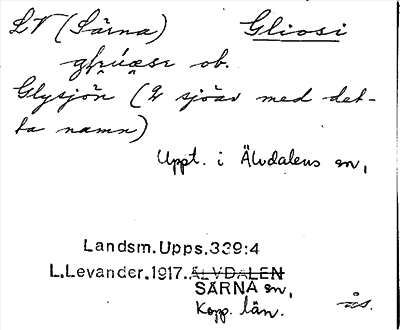 LV (Särna) Gliosi
ob.
Glysjön (2 sjöar med det-
ta namn)
Uppt. i Älvdalens sn,
Landsm. Upps. 339:4
L. Levander. 1917. ÄLVDALEN
SÄRNA sn,
Kopp. län.